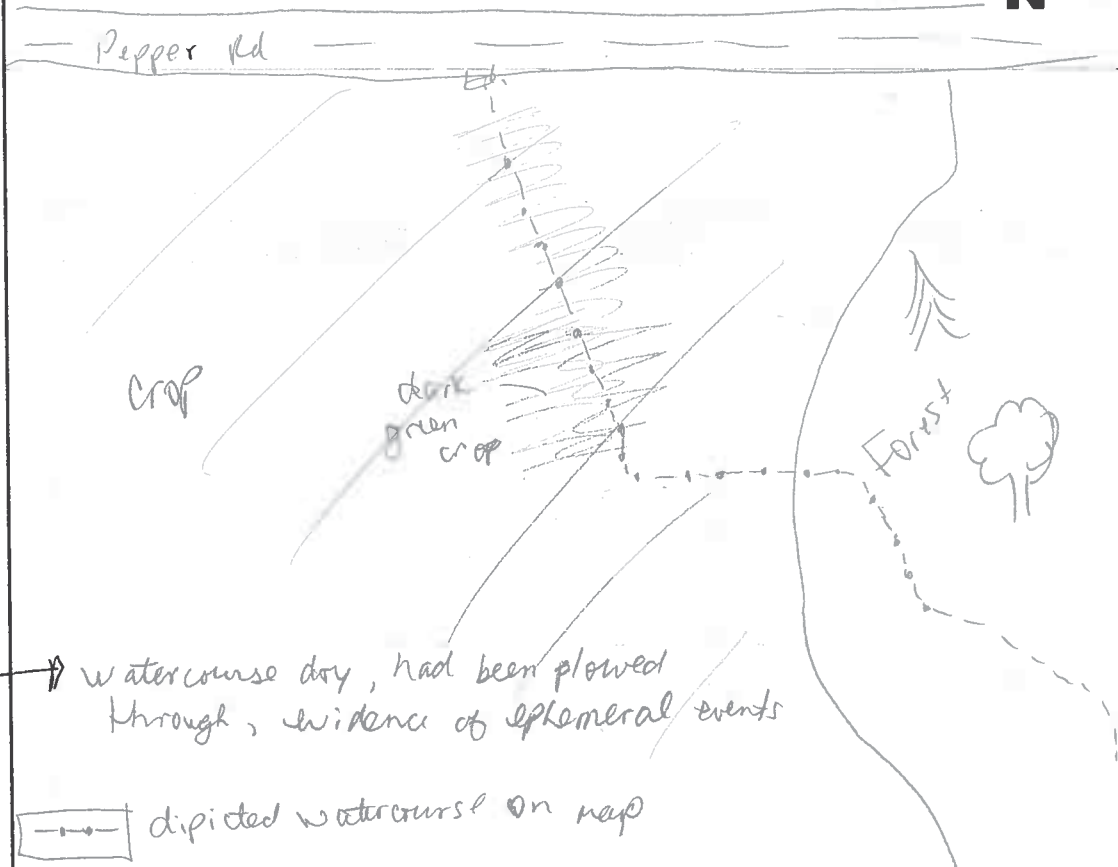 N
Pepper Rd
crop
dark
green
crop
Forest
watercourse dry, had been plowed
through, evidence of ephemeral events
dipicted watercourse on map